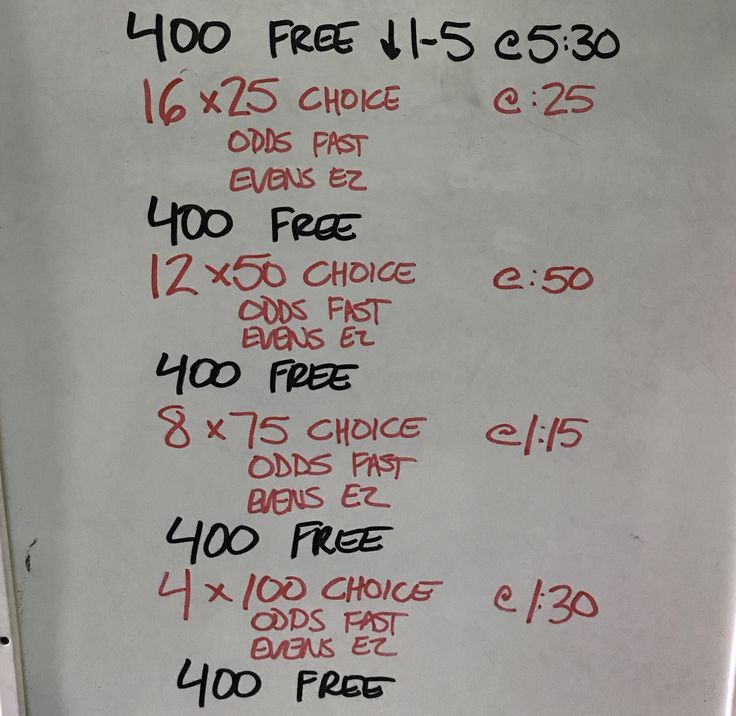 400 FREE ↓1-5 @5:30
16 x 25 CHOICE @:25
ODDS FAST
EVENS EZ
400 FREE
12 x 50 CHOICE @:50
ODDS FAST
EVENS EZ
400 FREE
8 x 75 CHOICE @1:15
ODDS FAST
EVENS EZ
400 FREE
4 x 100 CHOICE @1:30
ODDS FAST
EVENS EZ
400 FREE